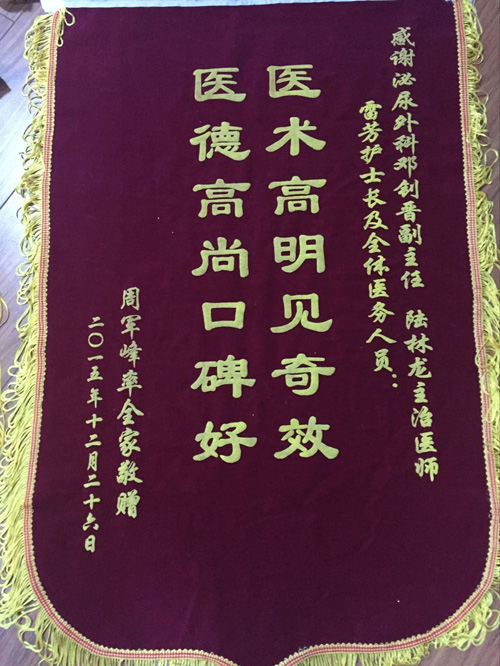 感谢泌尿外科邓创晋副主任 陆林龙主治医师
雷芳护士长及全体医务人员：
医术高明见奇效
医德高尚口碑好
周军峰率全家敬赠
二〇一五年十二月二十六日